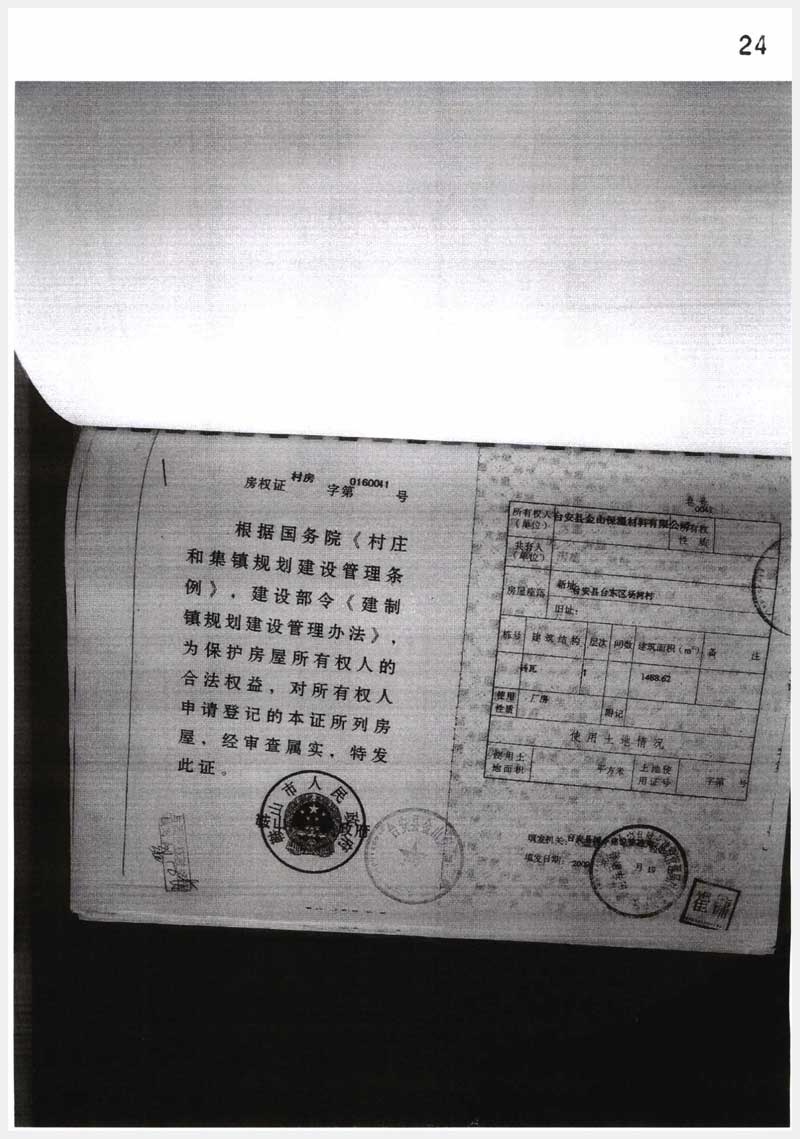 24
房权证 村房 字第 0160041 号
根据国务院《村庄
和集镇规划建设管理条
例》，建设部令《建制
镇规划建设管理办法》，
为保护房屋所有权人的
合法权益，对所有权人
申请登记的本证所列房
屋，经审查属实，特发
此证。
鞍山市人民政府
台安县金山
0041
所有权人（单位） 台安县金山保温材料有限公司 所有权性质
共有人（单位）
房屋座落 新址: 台安县台东区杨树村
旧址:
栋号 建筑结构 层次 间数 建筑面积（m²） 备注
砖瓦 1 1488.62
使用性质 厂房 附记
使用土地情况
使用土地面积 平方米 土地使用证号 字第 号
填发机关: 台安县
填发日期: 200 月 19